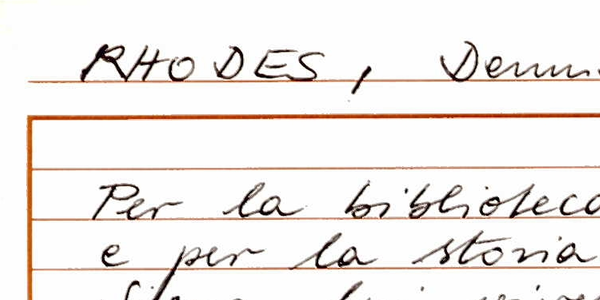 RHODES, Denn
Per la biblioteca
e per la storia